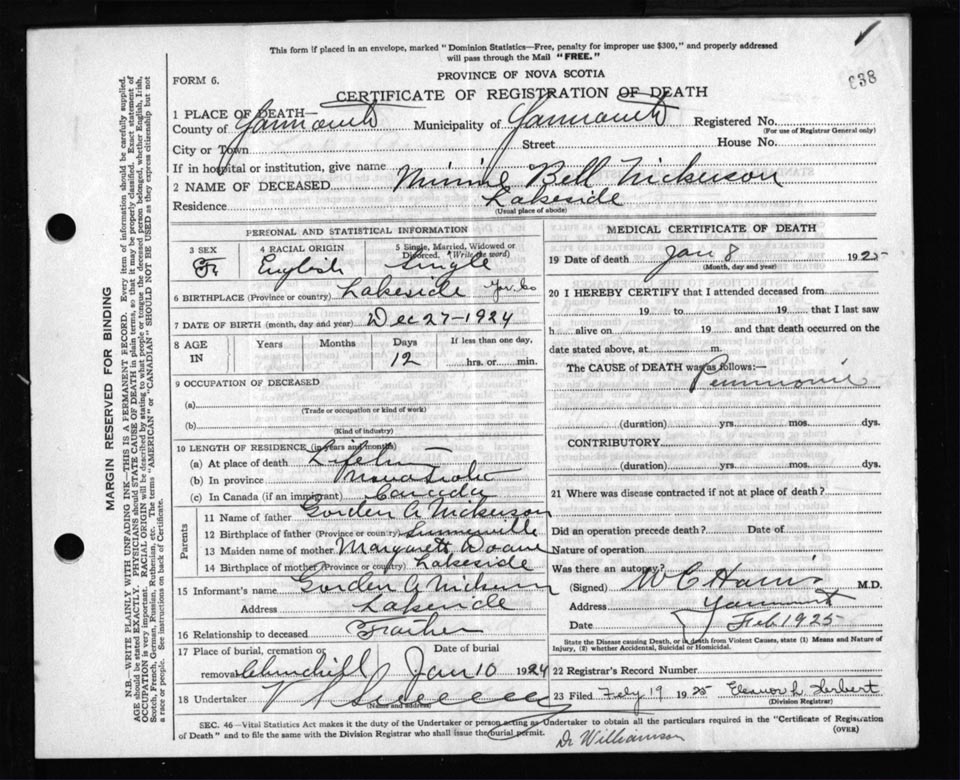 This form if placed in an envelope, marked "Dominion Statistics—Free, penalty for improper use $300," and properly addressed
will pass through the Mail "FREE."
FORM 6.
PROVINCE OF NOVA SCOTIA
CERTIFICATE OF REGISTRATION OF DEATH
638
1 PLACE OF DEATH—
County of Yarmouth Municipality of Yarmouth Registered No.
(For use of Registrar General only)
City or Town Street House No.
If in hospital or institution, give name
2 NAME OF DECEASED Minnie Bell Nickerson
Residence Lakeside
(Usual place of abode)
PERSONAL AND STATISTICAL INFORMATION
3 SEX
F
4 RACIAL ORIGIN
English
5 Single, Married, Widowed or
Divorced. (Write the word)
Single
6 BIRTHPLACE (Province or country) Lakeside Yar. Co
7 DATE OF BIRTH (month, day and year) Dec 27-1924
8 AGE
IN
Years
Months
Days
12
If less than one day,
hrs. or min.
9 OCCUPATION OF DECEASED
(a)
(Trade or occupation or kind of work)
(b)
(Kind of industry)
10 LENGTH OF RESIDENCE (in years and months)
(a) At place of death Lifetime
(b) In province Nova Scotia
(c) In Canada (if an immigrant) Canada
Parents
11 Name of father Gorden A Nickerson
12 Birthplace of father (Province or country)
13 Maiden name of mother Margarett Doane
14 Birthplace of mother (Province or country) Lakeside
15 Informant's name Gorden A Nickerson
Address Lakeside
16 Relationship to deceased Father
17 Place of burial, cremation or
removal Churchill
Date of burial
Jan 10 1924
18 Undertaker
(Name and address)
MEDICAL CERTIFICATE OF DEATH
19 Date of death Jan 8 1925
(Month, day and year)
20 I HEREBY CERTIFY that I attended deceased from
19 to 19 that I last saw
h alive on 19 and that death occurred on the
date stated above, at m.
The CAUSE OF DEATH was as follows:—
(duration) yrs. mos. dys.
CONTRIBUTORY
(duration) yrs. mos. dys.
21 Where was disease contracted if not at place of death?
Did an operation precede death? Date of
Nature of operation
Was there an autopsy?
(Signed) M.D.
Address Yarmouth
Date Feb 1925
State the Disease causing Death, or in death from Violent Causes, state (1) Means and Nature of
Injury, (2) whether Accidental, Suicidal or Homicidal.
22 Registrar's Record Number
23 Filed Feby 19 1925 Eleanor L. Herbert
(Division Registrar)
SEC. 46—Vital Statistics Act makes it the duty of the Undertaker or person acting as Undertaker to obtain all the particulars required in the "Certificate of Registration
of Death" and to file the same with the Division Registrar who shall issue the burial permit.
(OVER)
Dr Williamson
MARGIN RESERVED FOR BINDING
N.B.—WRITE PLAINLY WITH UNFADING INK—THIS IS A PERMANENT RECORD. Every item of information should be carefully supplied.
AGE should be stated EXACTLY. PHYSICIANS should STATE CAUSE OF DEATH in plain terms, so that it may be properly classified. Exact statement of
OCCUPATION is very important. RACIAL ORIGIN will be described by stating to what people or tongue the deceased person belonged, whether English, Irish,
Scotch, French, German, Russian, Ruthenian, etc. The terms "AMERICAN" or "CANADIAN" SHOULD NOT BE USED as they express citizenship but not
a race or people. See instructions on back of Certificate.